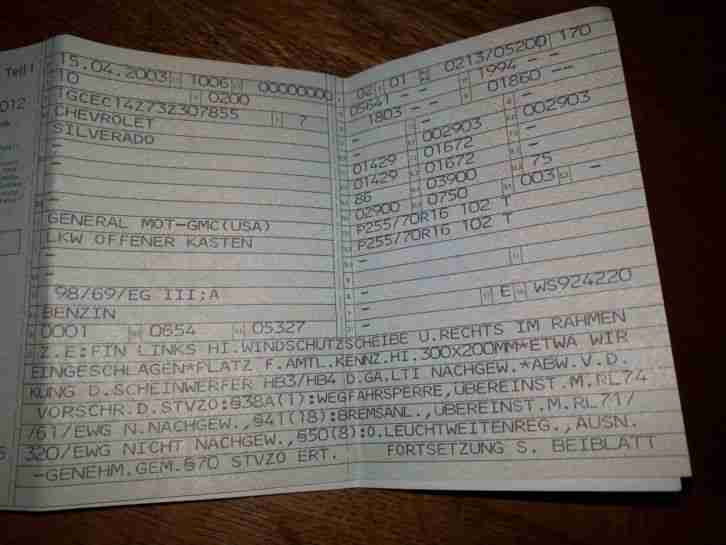 Teil I
15.04.2003 1006 00000000
10 0200
1GCEC14Z73Z307855 7
CHEVROLET
SILVERADO
-
-
-
-
GENERAL MOT-GMC(USA)
LKW OFFENER KASTEN
-
-
98/69/EG III;A
BENZIN
0001 0654 05327
02 01 0213/05200 170
05641 - - 1994 - -
1803 - - 01860 - -
-
- 002903 002903
01429 01672 -
01429 01672 -
86 03900 75
02900 0750 003 -
P255/70R16 102 T
P255/70R16 102 T
-
-
-
- E WS924220
Z.E:FIN LINKS HI.WINDSCHUTZSCHEIBE U.RECHTS IM RAHMEN
EINGESCHLAGEN*PLATZ F.AMTL.KENNZ.HI.300X200MM*ETWA WIR
KUNG D.SCHEINWERFER HB3/HB4 D.GA.LTI NACHGEW.*ABW.V.D.
VORSCHR.D.STVZO:§38A(1):WEGFAHRSPERRE,ÜBEREINST.M.RL74
/61/EWG N.NACHGEW.,§41(18):BREMSANL.,ÜBEREINST.M.RL71/
320/EWG NICHT NACHGEW.,§50(8):O.LEUCHTWEITENREG.,AUSN.
-GENEHM.GEM.§70 STVZO ERT. FORTSETZUNG S. BEIBLATT